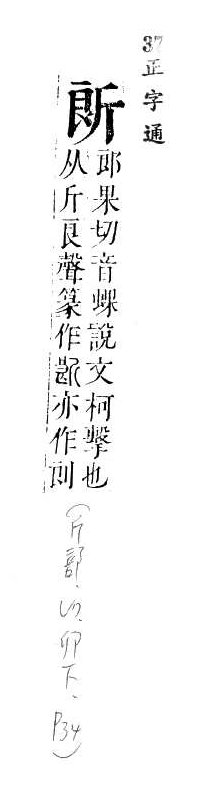 37正字通
郎果切音蜾說文柯擊也
从斤良聲篆作亦作
(斤部.卯下.P34)